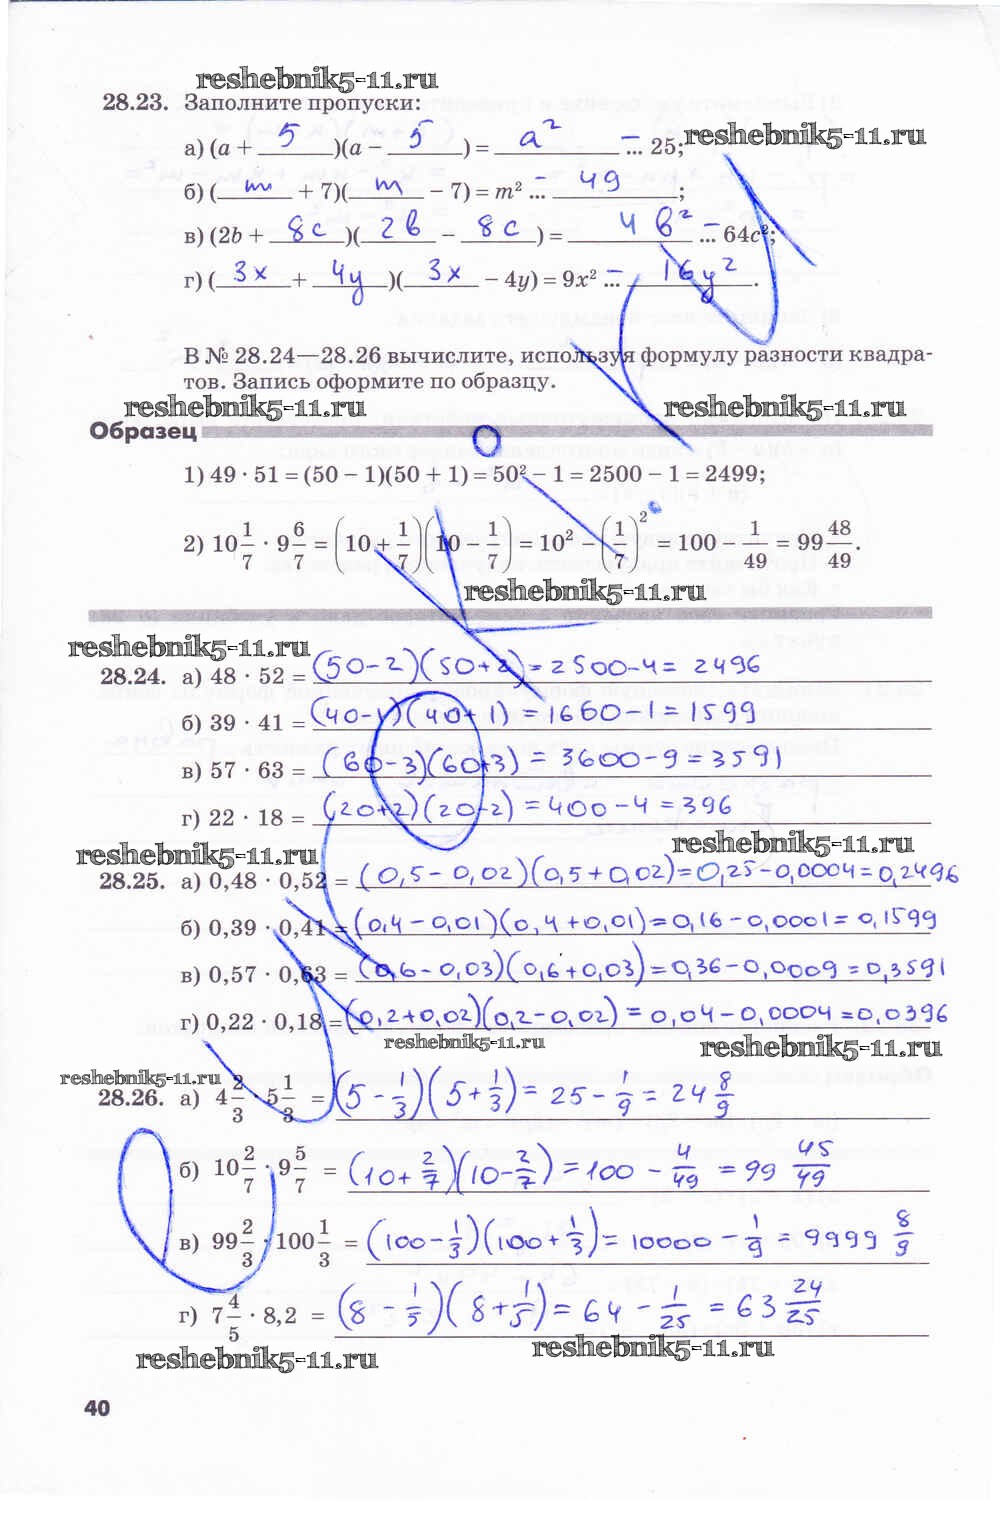 reshebnik5-11.ru
28.23. Заполните пропуски:
а) (a + 5)(a − 5) = a² − ... 25;
reshebnik5-11.ru
б) (m + 7)(m − 7) = m² − ... 49;
в) (2b + 8c)(2b − 8c) = 4b² − ... 64c²;
г) (3x + 4y)(3x − 4y) = 9x² − ... 16y².
В № 28.24—28.26 вычислите, используя формулу разности квадра-
тов. Запись оформите по образцу.
reshebnik5-11.ru reshebnik5-11.ru
Образец
1) 49 · 51 = (50 − 1)(50 + 1) = 50² − 1 = 2500 − 1 = 2499;
2) 10 1/7 · 9 6/7 = (10 + 1/7)(10 − 1/7) = 10² − (1/7)² = 100 − 1/49 = 99 48/49.
reshebnik5-11.ru
reshebnik5-11.ru
28.24. а) 48 · 52 = (50−2)(50+2) = 2500−4 = 2496
б) 39 · 41 = (40−1)(40+1) = 1600−1 = 1599
в) 57 · 63 = (60−3)(60+3) = 3600−9 = 3591
г) 22 · 18 = (20+2)(20−2) = 400−4 = 396
reshebnik5-11.ru reshebnik5-11.ru
28.25. а) 0,48 · 0,52 = (0,5−0,02)(0,5+0,02) = 0,25−0,0004 = 0,2496
б) 0,39 · 0,41 = (0,4−0,01)(0,4+0,01) = 0,16−0,0001 = 0,1599
в) 0,57 · 0,63 = (0,6−0,03)(0,6+0,03) = 0,36−0,0009 = 0,3591
г) 0,22 · 0,18 = (0,2+0,02)(0,2−0,02) = 0,04−0,0004 = 0,0396
reshebnik5-11.ru reshebnik5-11.ru
reshebnik5-11.ru
28.26. а) 4 2/3 · 5 1/3 = (5 − 1/3)(5 + 1/3) = 25 − 1/9 = 24 8/9
б) 10 2/7 · 9 5/7 = (10 + 2/7)(10 − 2/7) = 100 − 4/49 = 99 45/49
в) 99 2/3 · 100 1/3 = (100 − 1/3)(100 + 1/3) = 10000 − 1/9 = 9999 8/9
г) 7 4/5 · 8,2 = (8 − 1/5)(8 + 1/5) = 64 − 1/25 = 63 24/25
reshebnik5-11.ru reshebnik5-11.ru
40